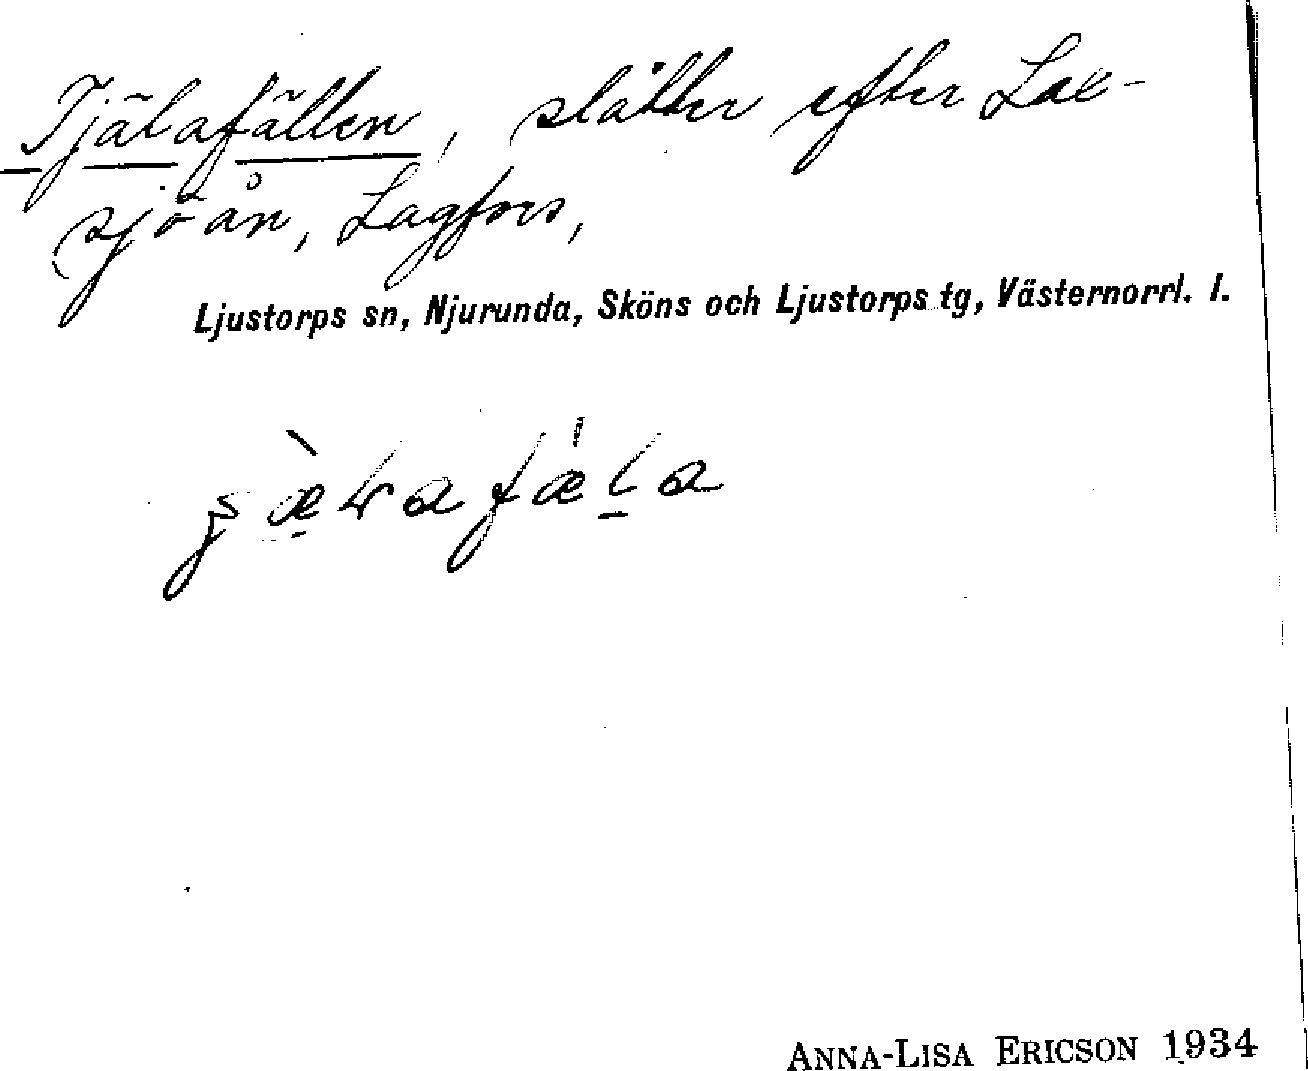 Tjälafällen, slåtter efter Lax-
sjöån, Lagfors,
Ljustorps sn, Njurunda, Sköns och Ljustorps tg, Västernorrl. l.
ANNA-LISA ERICSON 1934